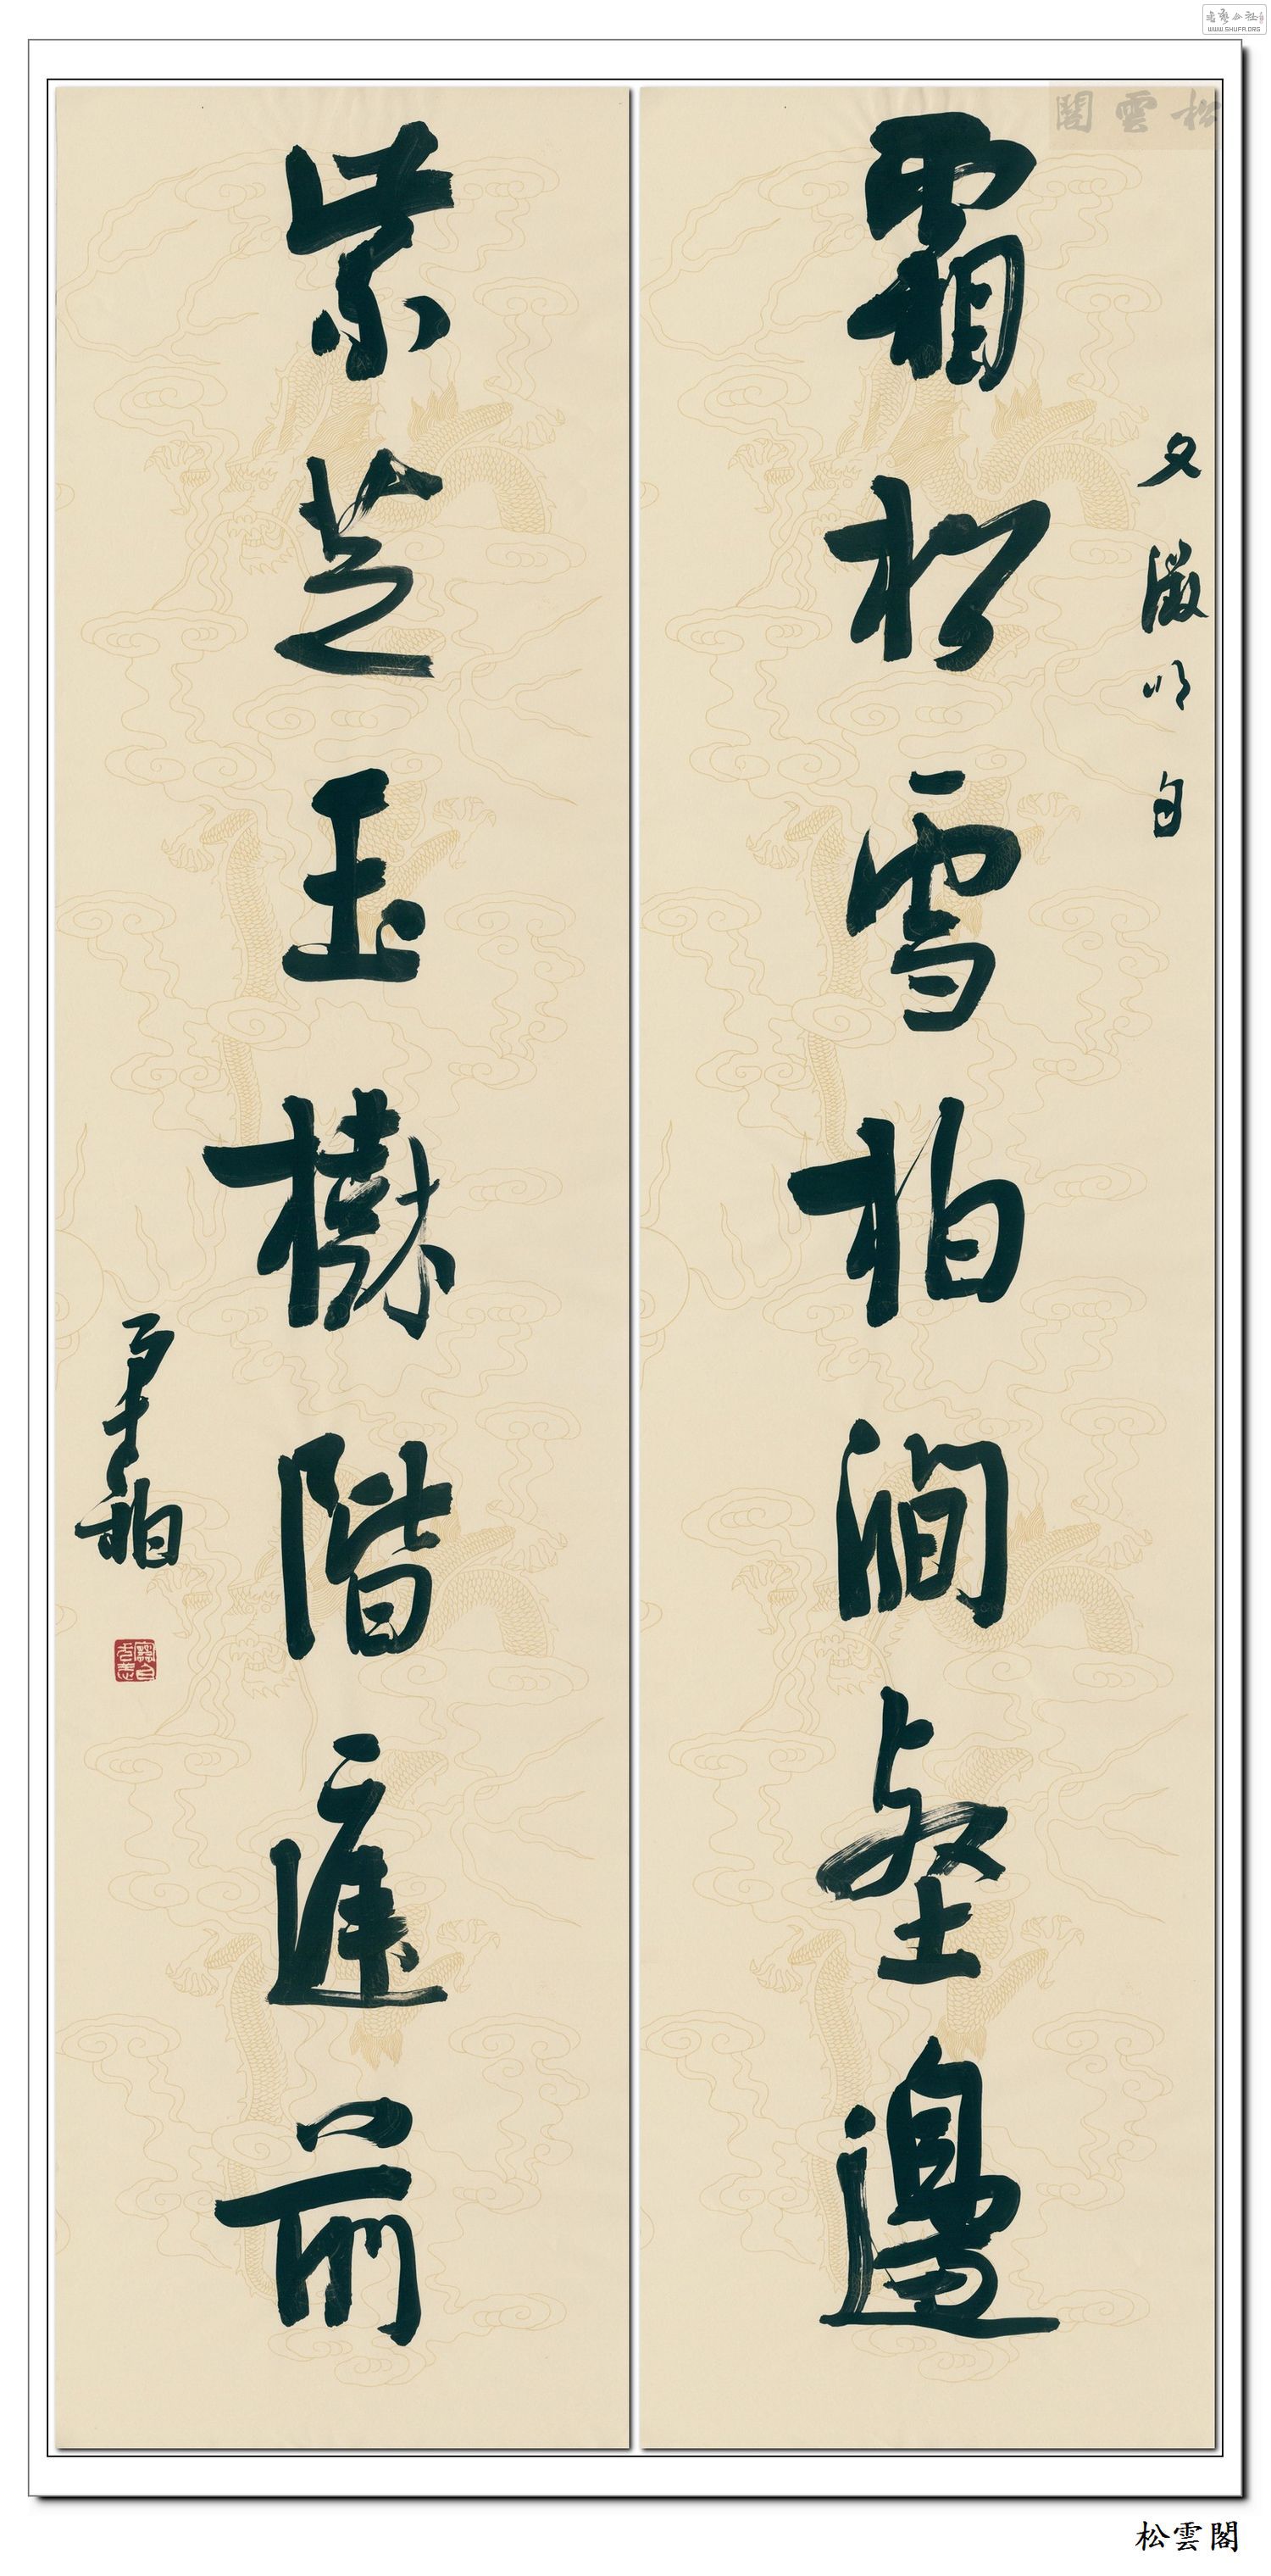 霜松雪柏澗壑邊
文徵明句
紫芝玉樹階庭前
松雲閣
書藝公社
WWW.SHUFA.ORG
松雲閣